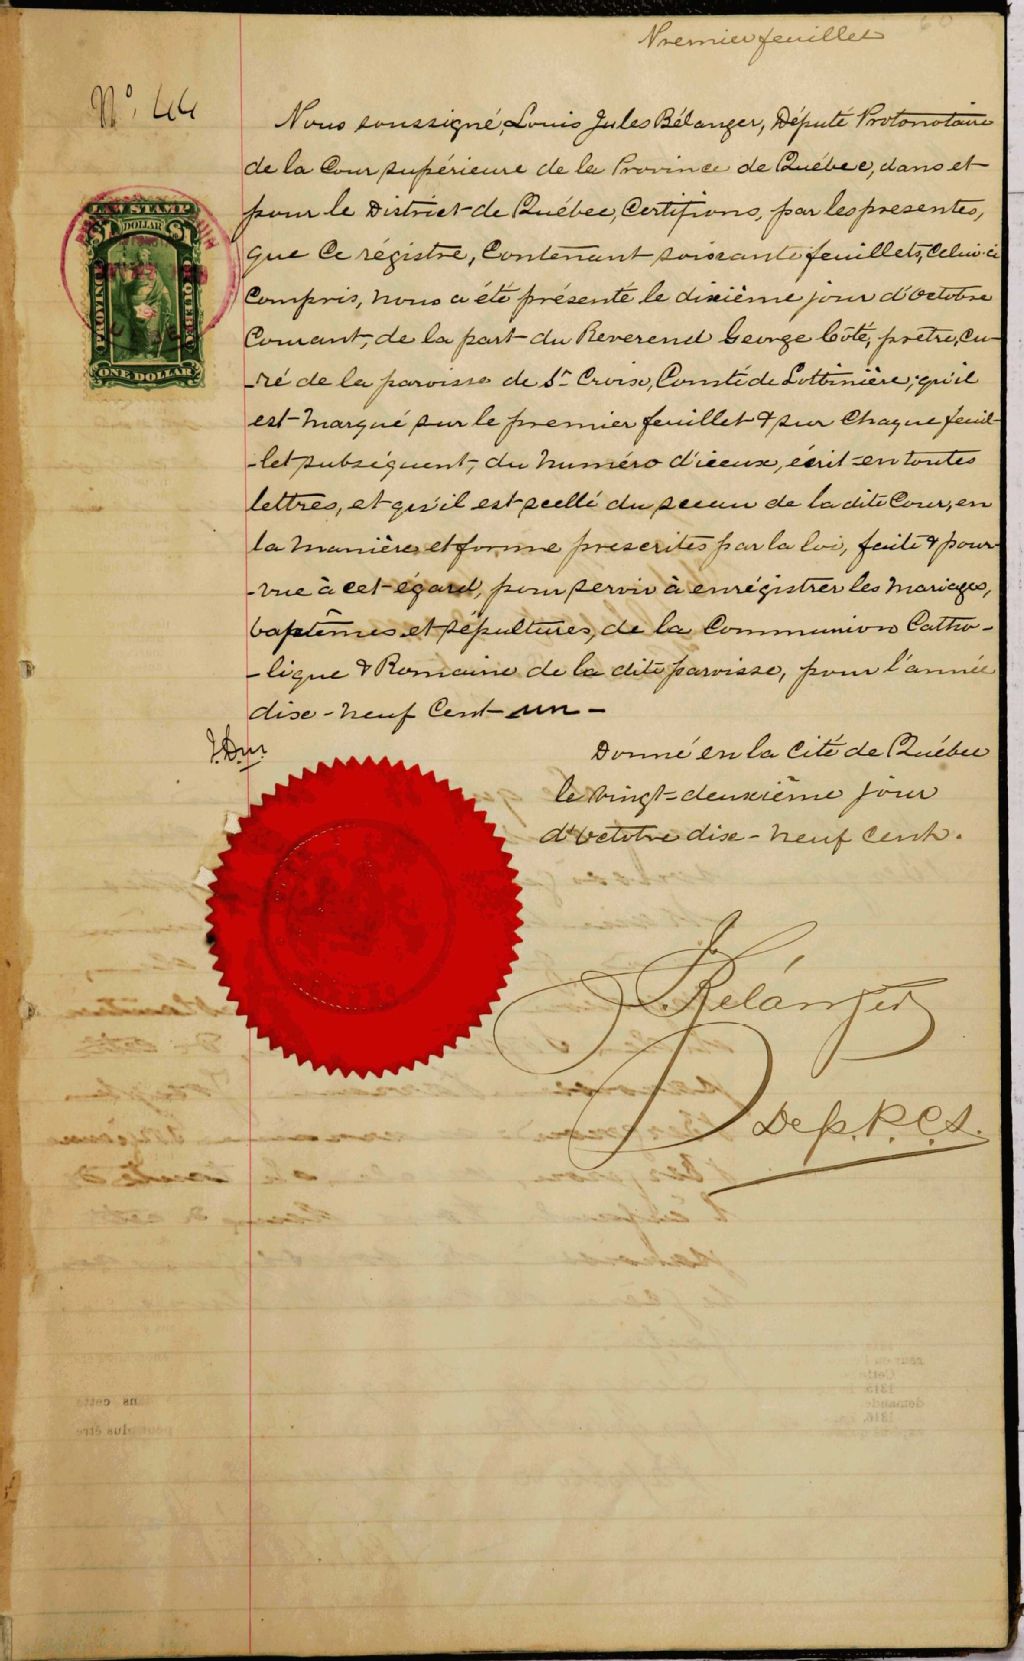 Premier feuillet
N° 44
Nous soussigné, Louis Jules Bélanger, Député Protonotaire
de la Cour supérieure de la Province de Québec, dans et
pour le District de Québec, Certifions, par les presentes,
que Ce régistre, Contenant soixante feuillets, Celui-ci
Compris, nous a été présenté le dixième jour d'Octobre
Courant, de la part du Reverend George Côté, prêtre, Cu-
-ré de la paroisse de Ste Croix, Comté de Lotbinière; qu'il
est marqué sur le premier feuillet & sur Chaque feuil-
-let subséquent, du numéro d'iceux, écrit en toutes
lettres, et qu'il est scellé du sceau de la dite Cour, en
la manière et forme prescrites par la loi, faite & pour-
-vue à cet égard, pour servir à enrégistrer les mariages,
baptêmes et sépultures, de la Communion Catho-
-lique & Romaine de la dite paroisse, pour l'année
dix-neuf Cent un -
Donné en la Cité de Québec
le vingt-deuxième jour
d'Octobre dix-neuf Cent.
LAW STAMP
$1 DOLLAR $1
PROVINCE
QUEBEC
ONE DOLLAR
J. Bélanger
Dep. P. C. S.